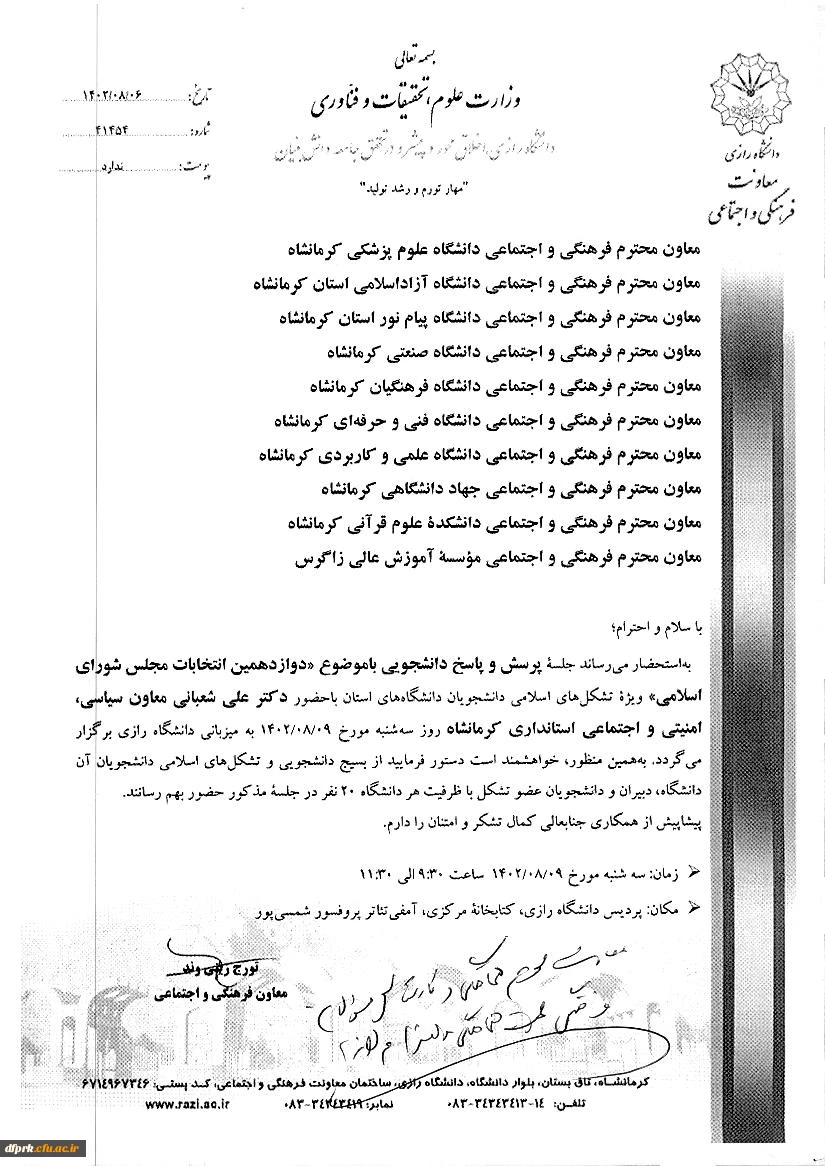 بسمه تعالی
وزارت علوم، تحقیقات و فنّاوری
دانشگاه رازی، اخلاق محور و پیشرو در تحقق جامعه دانش بنیان
"مهار تورم و رشد تولید"
تاریخ: ۱۴۰۲/۰۸/۰۶
شماره: ۴۱۴۵۴
پیوست: ندارد
دانشگاه رازی
معاونت
فرهنگی و اجتماعی
معاون محترم فرهنگی و اجتماعی دانشگاه علوم پزشکی کرمانشاه
معاون محترم فرهنگی و اجتماعی دانشگاه آزاداسلامی استان کرمانشاه
معاون محترم فرهنگی و اجتماعی دانشگاه پیام نور استان کرمانشاه
معاون محترم فرهنگی و اجتماعی دانشگاه صنعتی کرمانشاه
معاون محترم فرهنگی و اجتماعی دانشگاه فرهنگیان کرمانشاه
معاون محترم فرهنگی و اجتماعی دانشگاه فنی و حرفه‌ای کرمانشاه
معاون محترم فرهنگی و اجتماعی دانشگاه علمی و کاربردی کرمانشاه
معاون محترم فرهنگی و اجتماعی جهاد دانشگاهی کرمانشاه
معاون محترم فرهنگی و اجتماعی دانشکدهٔ علوم قرآنی کرمانشاه
معاون محترم فرهنگی و اجتماعی مؤسسهٔ آموزش عالی زاگرس
با سلام و احترام؛
به‌استحضار می‌رساند جلسهٔ پرسش و پاسخ دانشجویی باموضوع «دوازدهمین انتخابات مجلس شورای
اسلامی» ویژهٔ تشکل‌های اسلامی دانشجویان دانشگاه‌های استان باحضور دکتر علی شعبانی معاون سیاسی،
امنیتی و اجتماعی استانداری کرمانشاه روز سه‌شنبه مورخ ۱۴۰۲/۰۸/۰۹ به میزبانی دانشگاه رازی برگزار
می‌گردد. به‌همین منظور، خواهشمند است دستور فرمایید از بسیج دانشجویی و تشکل‌های اسلامی دانشجویان آن
دانشگاه، دبیران و دانشجویان عضو تشکل با ظرفیت هر دانشگاه ۲۰ نفر در جلسهٔ مذکور حضور بهم رسانند.
پیشاپیش از همکاری جنابعالی کمال تشکر و امتنان را دارم.
➢ زمان: سه شنبه مورخ ۱۴۰۲/۰۸/۰۹ ساعت ۹:۳۰ الی ۱۱:۳۰
➢ مکان: پردیس دانشگاه رازی، کتابخانهٔ مرکزی، آمفی‌تئاتر پروفسور شمسی‌پور
تورج
معاون فرهنگی و اجتماعی
کرمانشاه، تاق بستان، بلوار دانشگاه، دانشگاه رازی، ساختمان معاونت فرهنگی و اجتماعی، کد پستی: ۶۷۱۴۹۶۷۳۴۶
تلفن: ۱۴-۰۸۳-۳۴۳۴۳۴۱۳ نمابر: ۰۸۳-۳۴۳۴۳۴۱۹ www.razi.ac.ir
dfprk.cfu.ac.ir